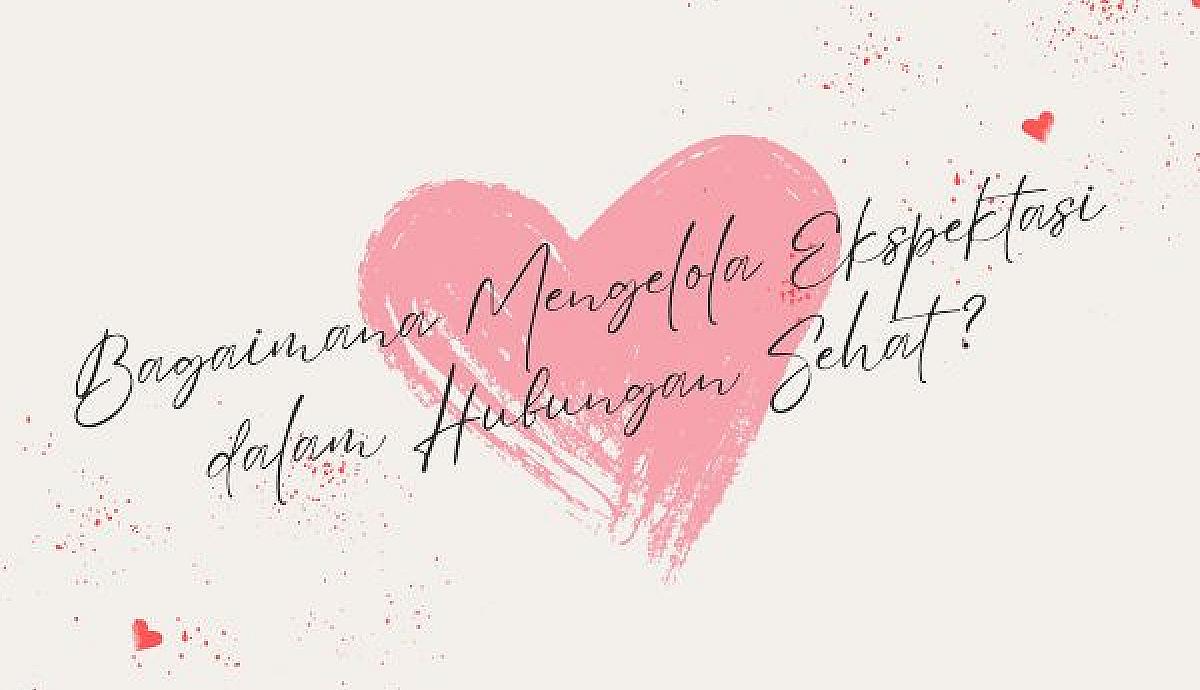 Bagaimana Mengelola Ekspektasi
dalam Hubungan Sehat?